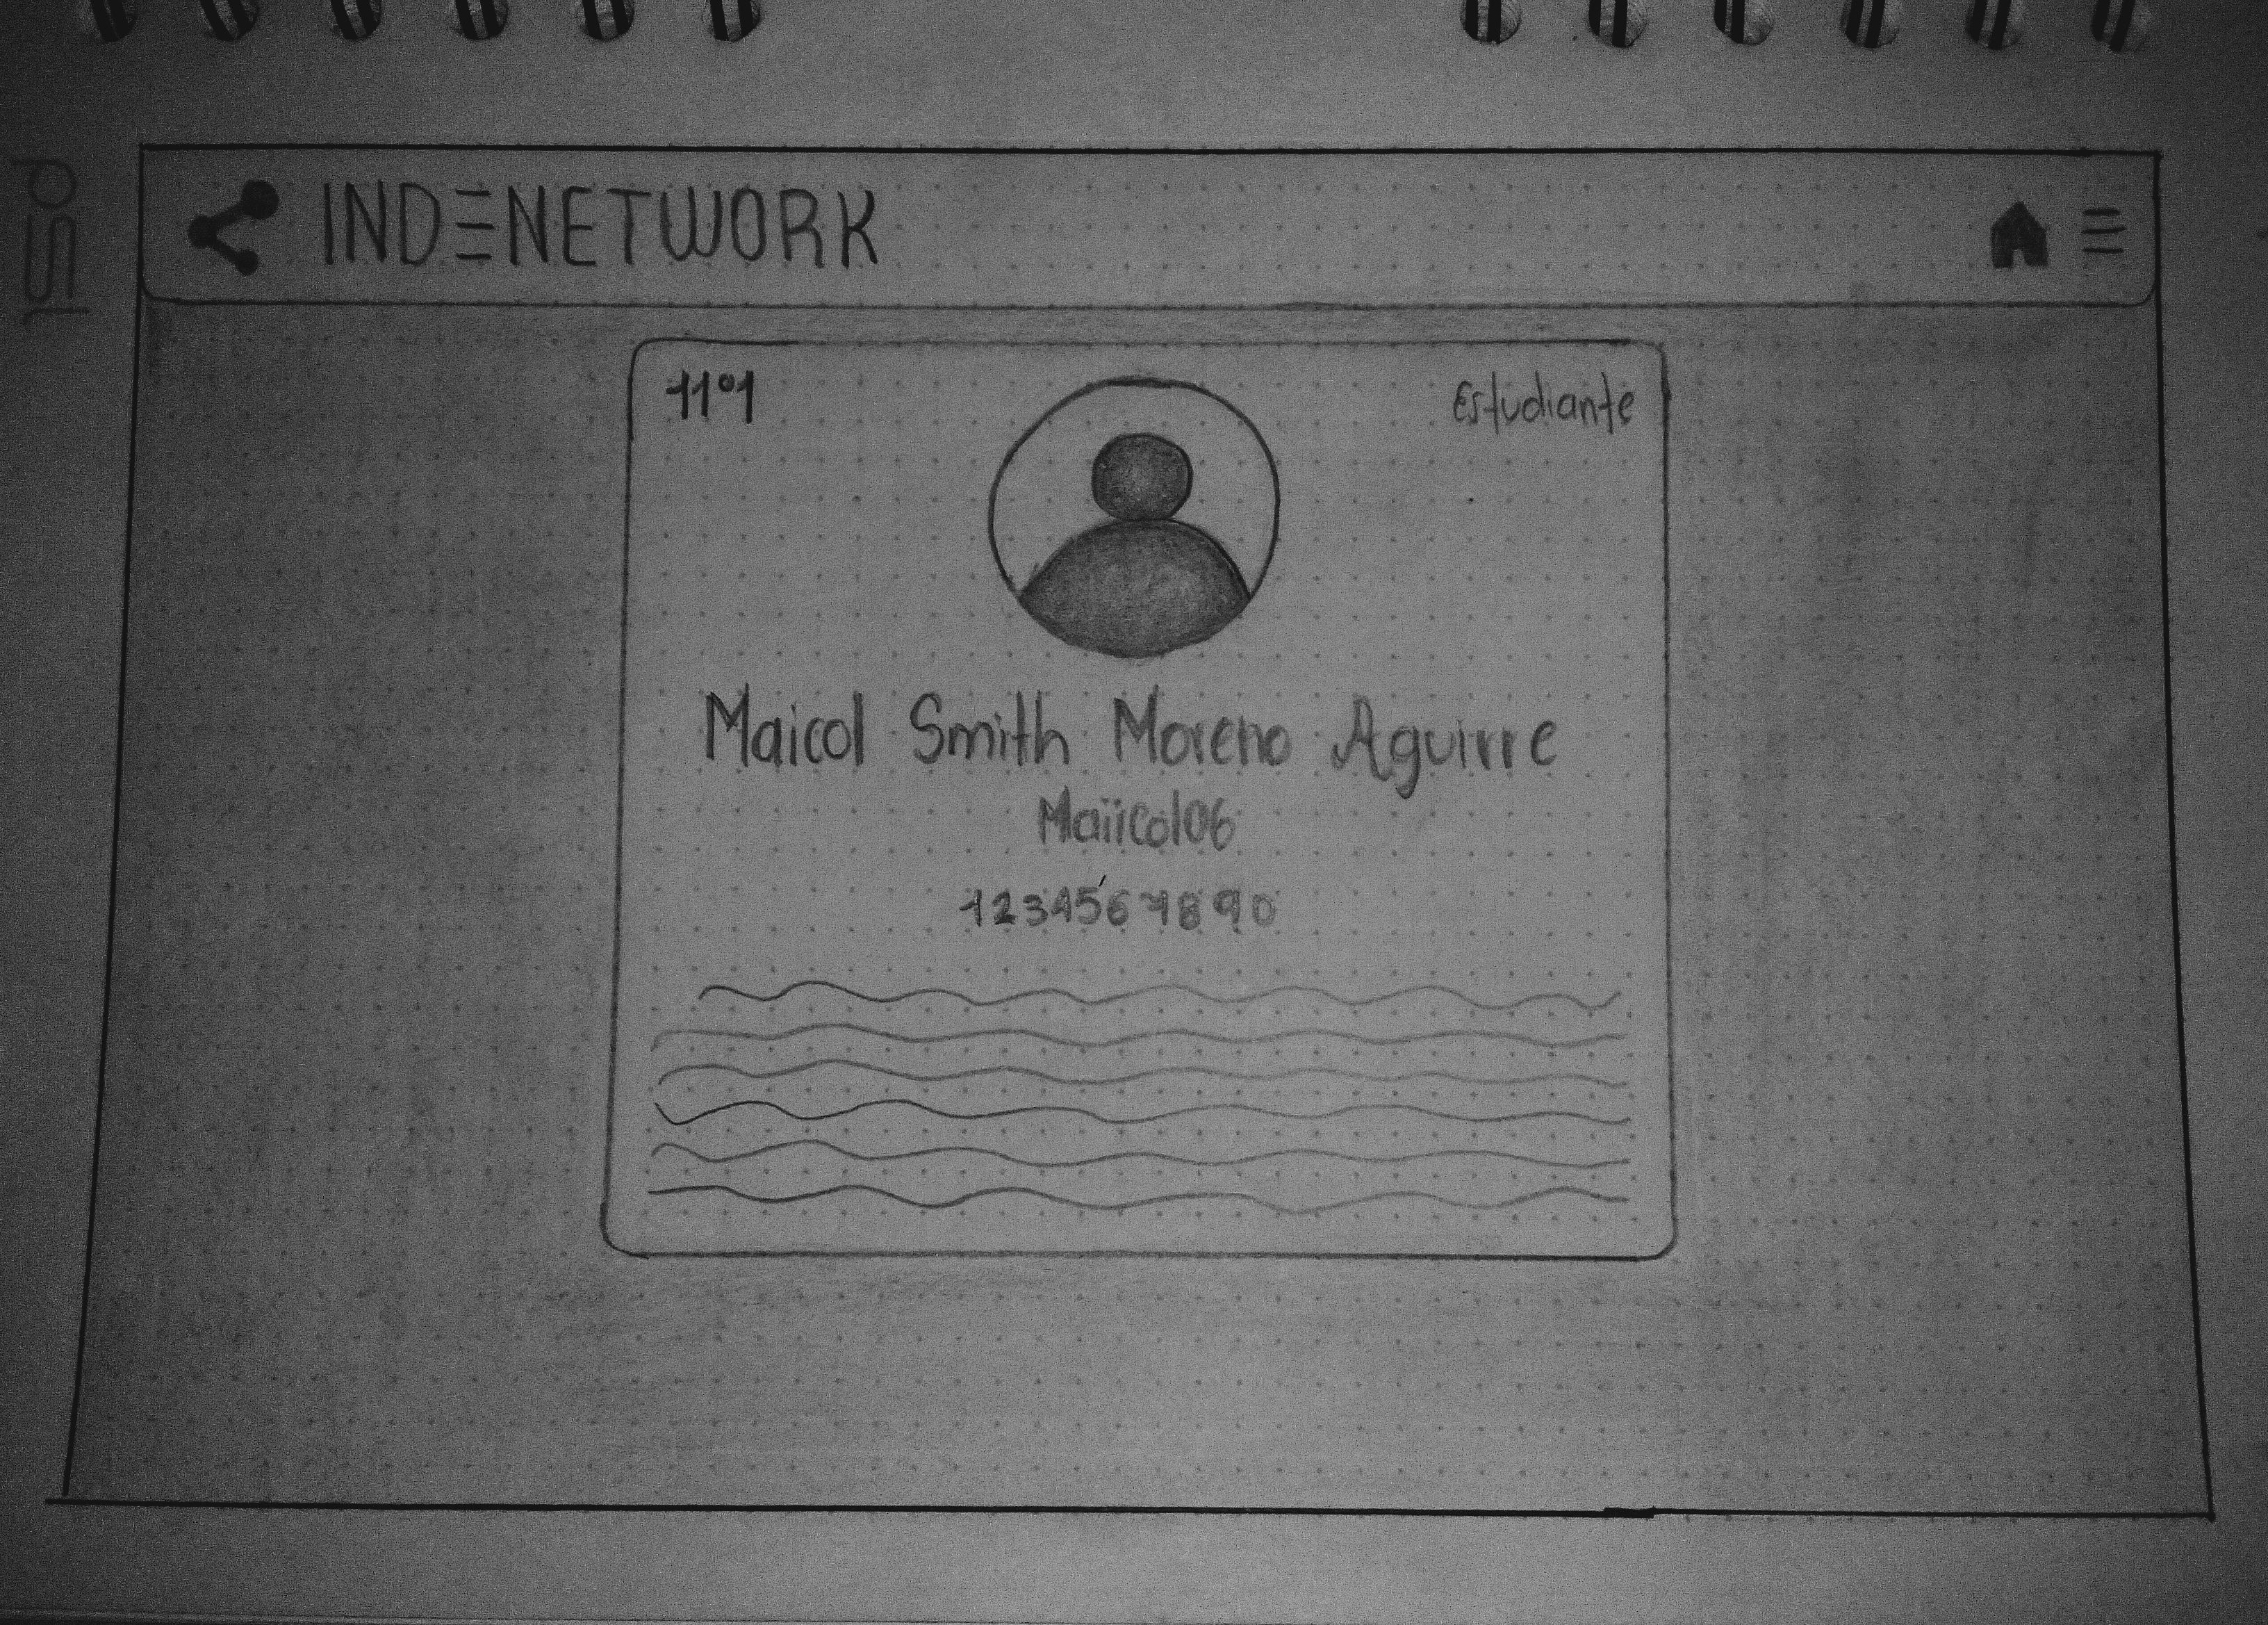 INDENETWORK
11°1
Estudiante
Maicol Smith Moreno Aguirre
Maiicol06
1234567890